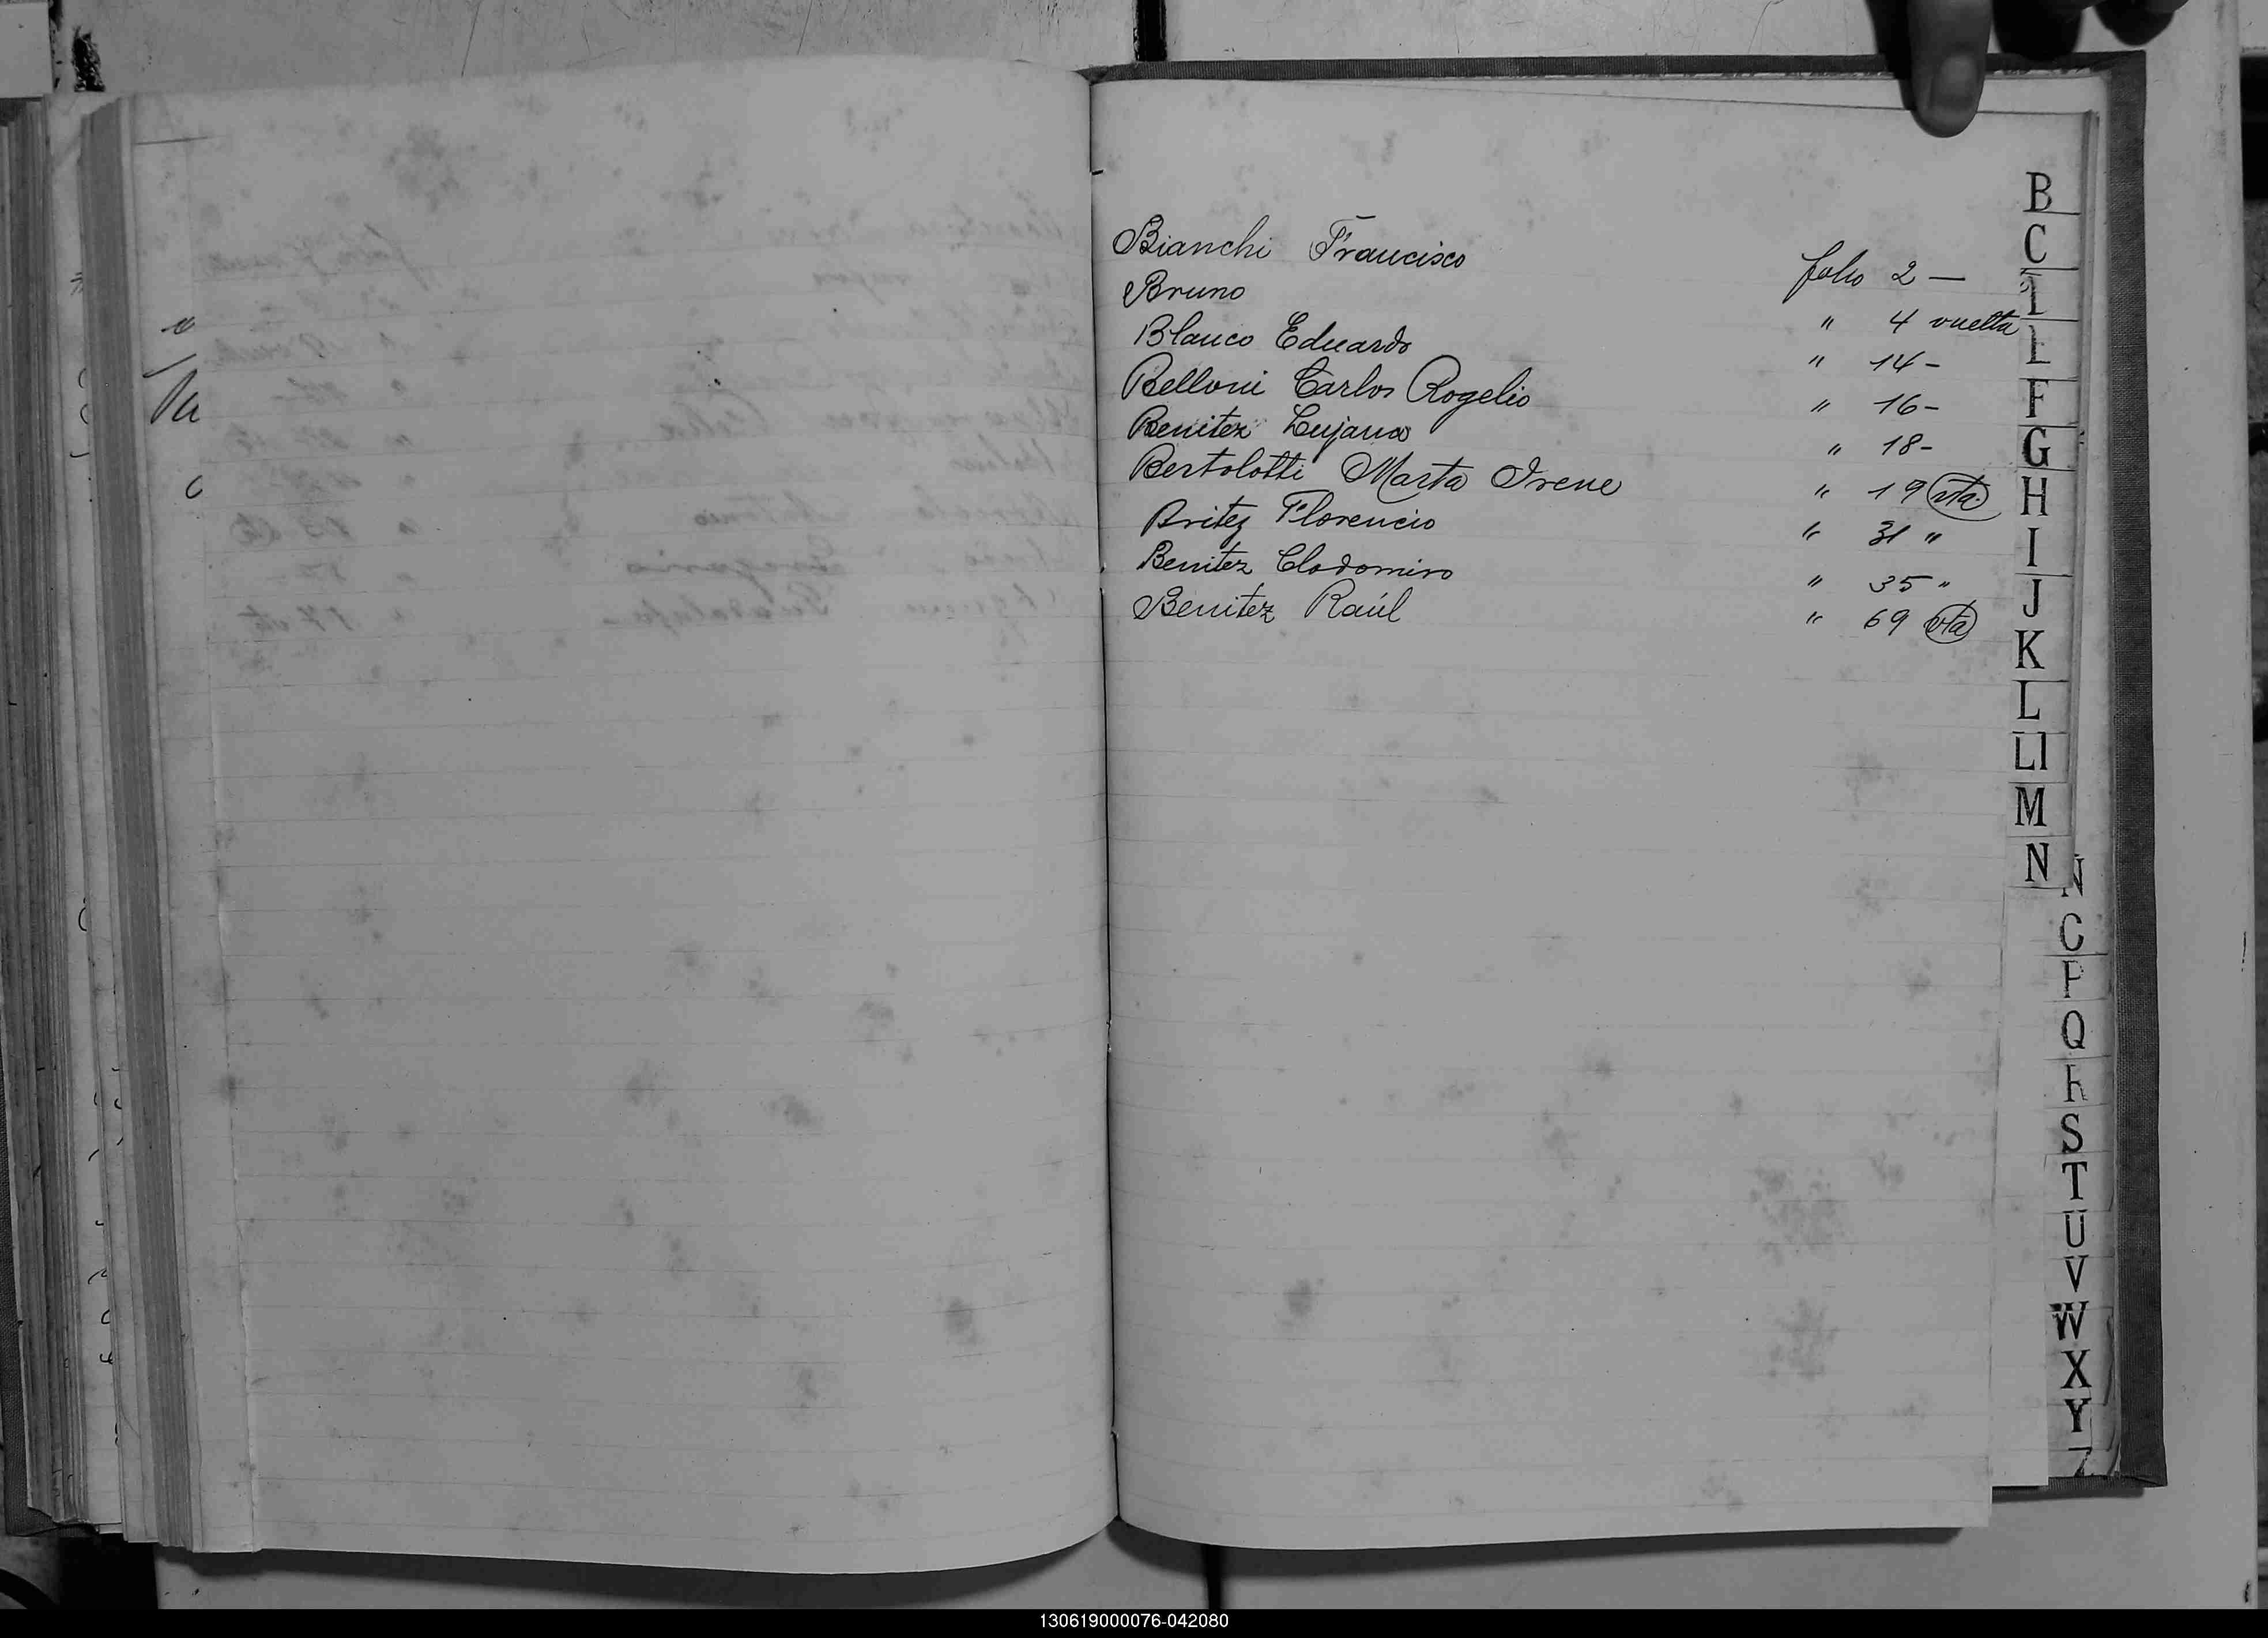 Bianchi Francisco folio 2 —
Bruno " 4 vuelta
Blanco Eduardo " 14 -
Belloni Carlos Rogelio " 16 -
Benitez Lujana " 18 -
Bertolotti Marta Irene " 19 vta.
Britez Florencio " 31 "
Benitez Clodomiro " 35 "
Benitez Raúl " 69 vta
B
C
F
G
H
I
J
K
L
Ll
M
N
N
P
Q
S
T
U
V
W
X
Y
Z
130619000076-042080